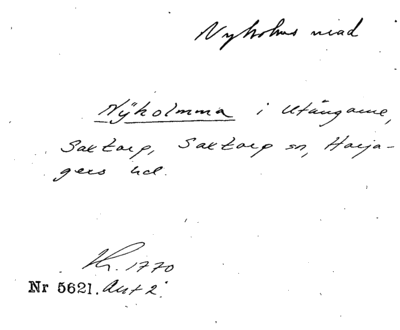 Nyholms mad
Nÿholmma i Utängarne,
Saxtorp, Saxtorp sn, Harja-
gers hd.
Kr. 1770
Nr 5621. Akt 2.